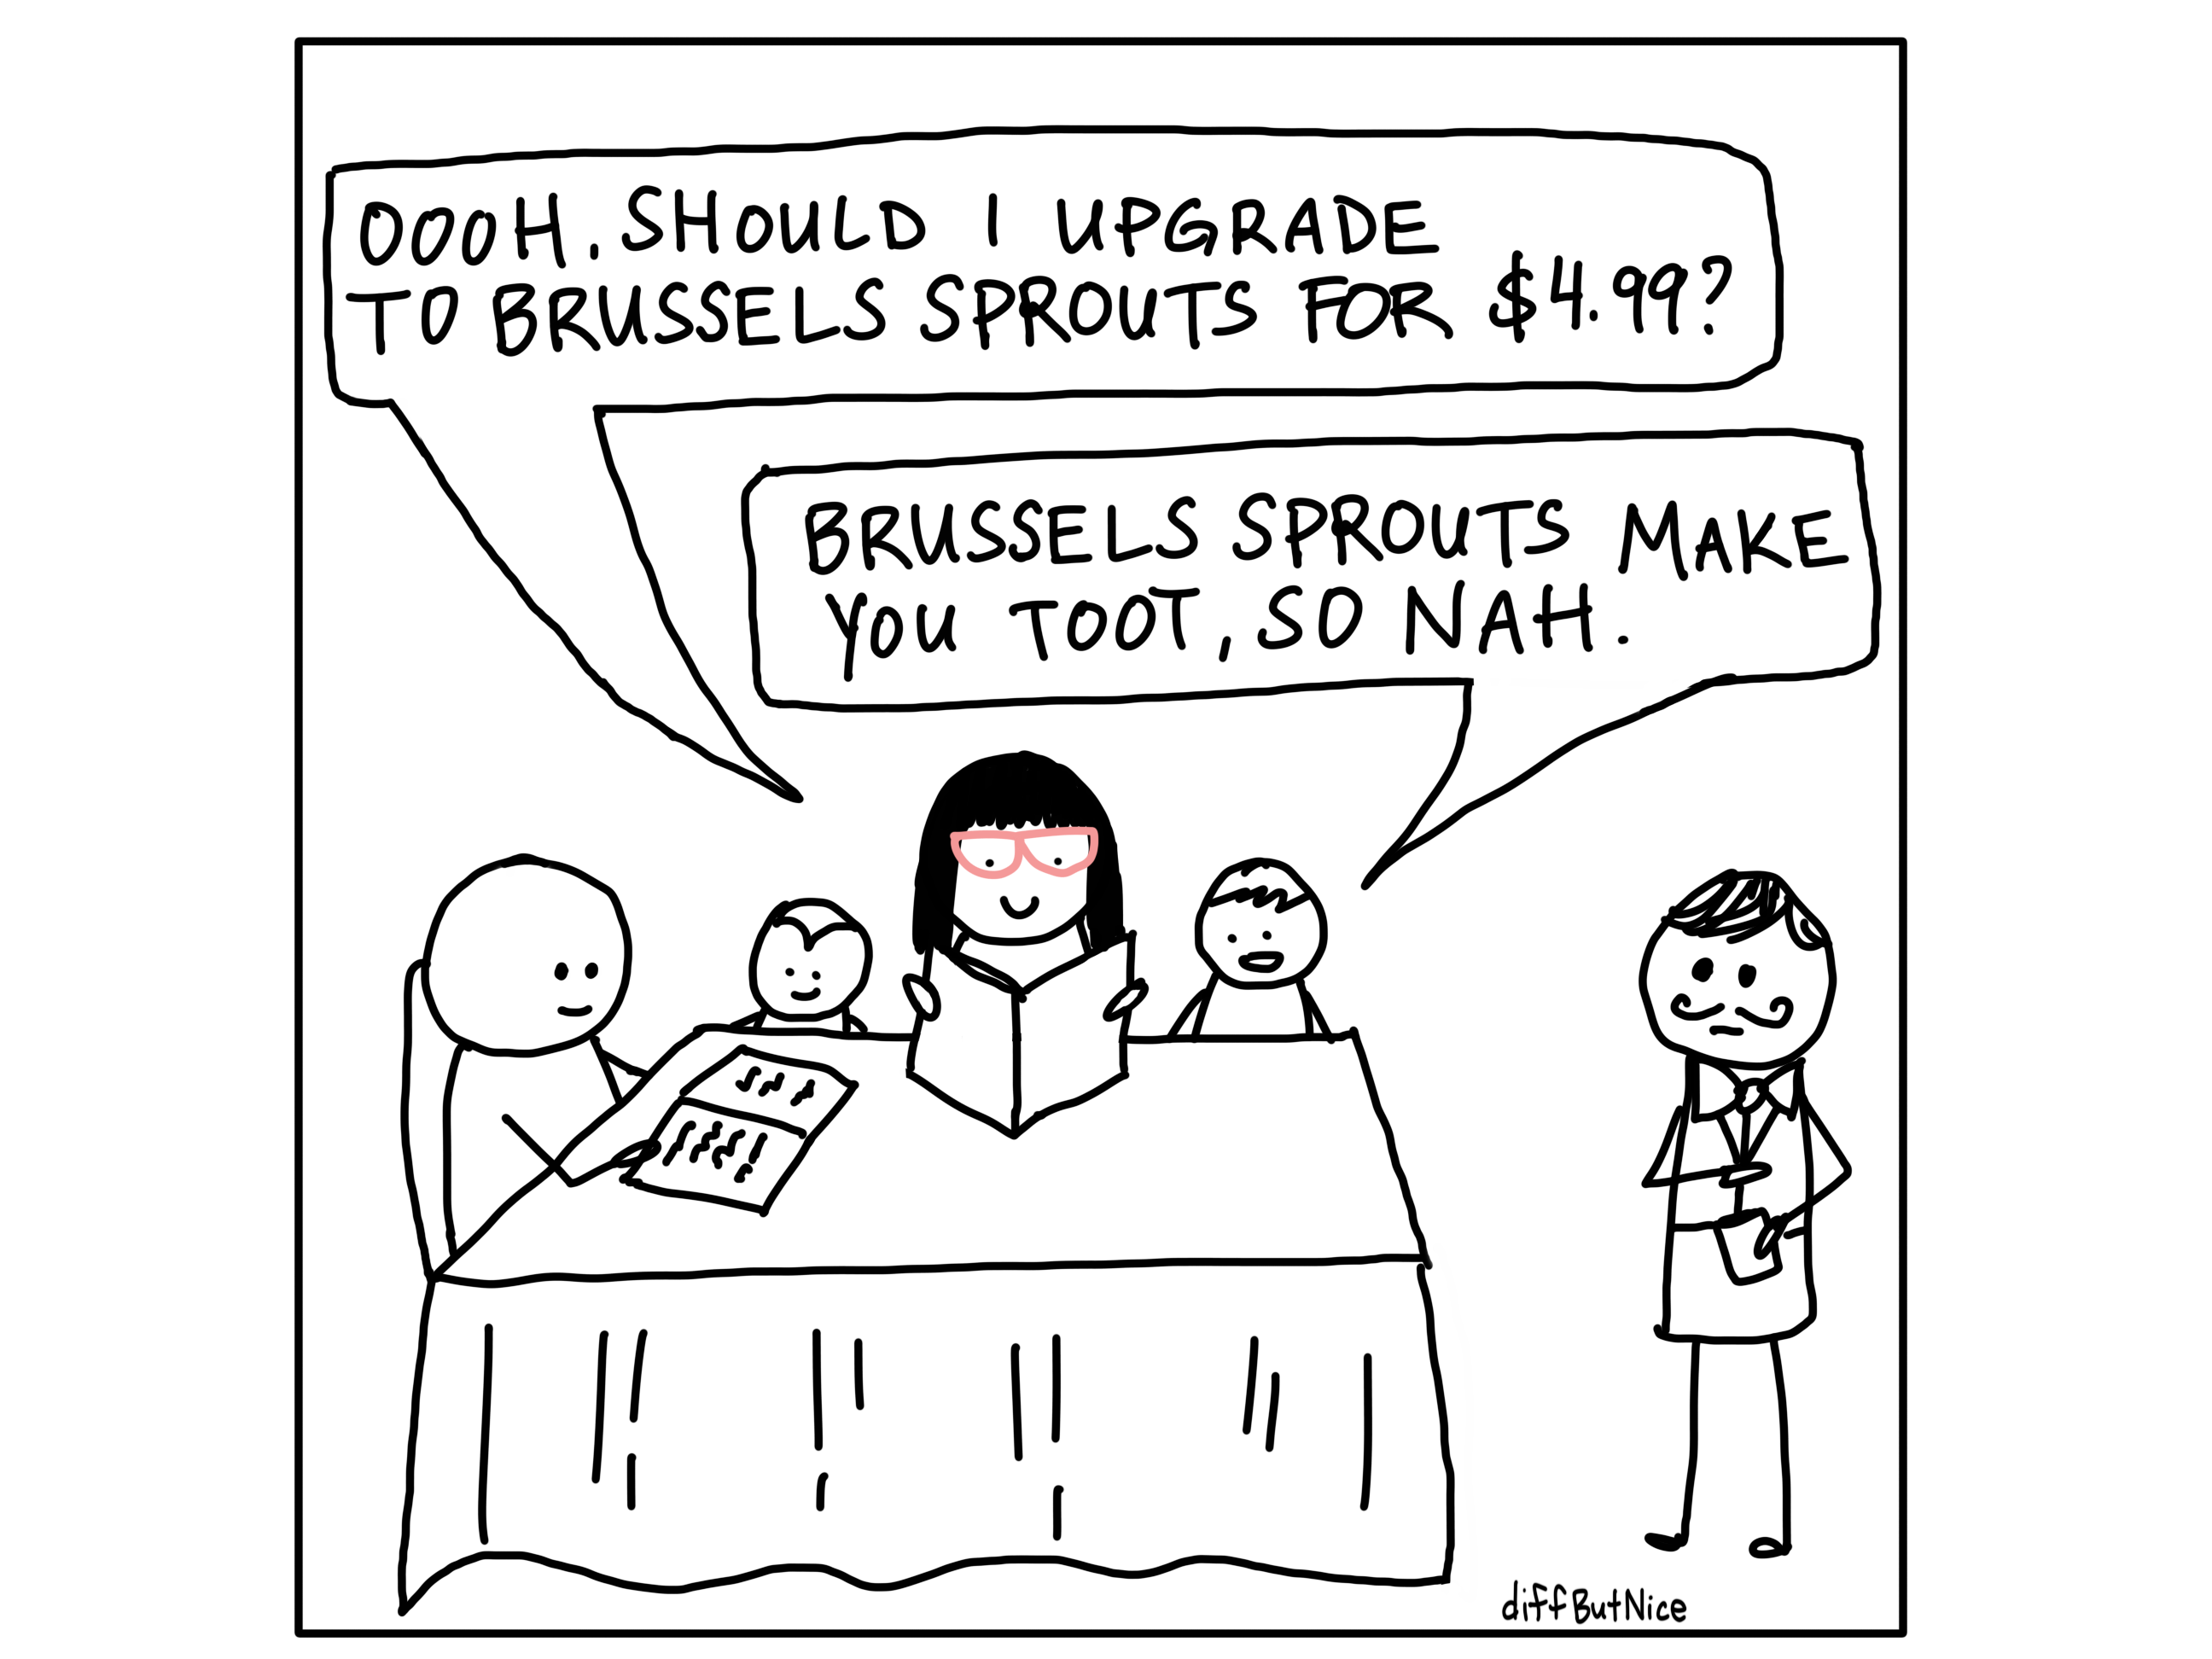 OOOH, SHOULD I UPGRADE
TO BRUSSELS SPROUTS FOR $4.99?
BRUSSELS SPROUTS MAKE
YOU TOOT, SO NAH.
diffButNice